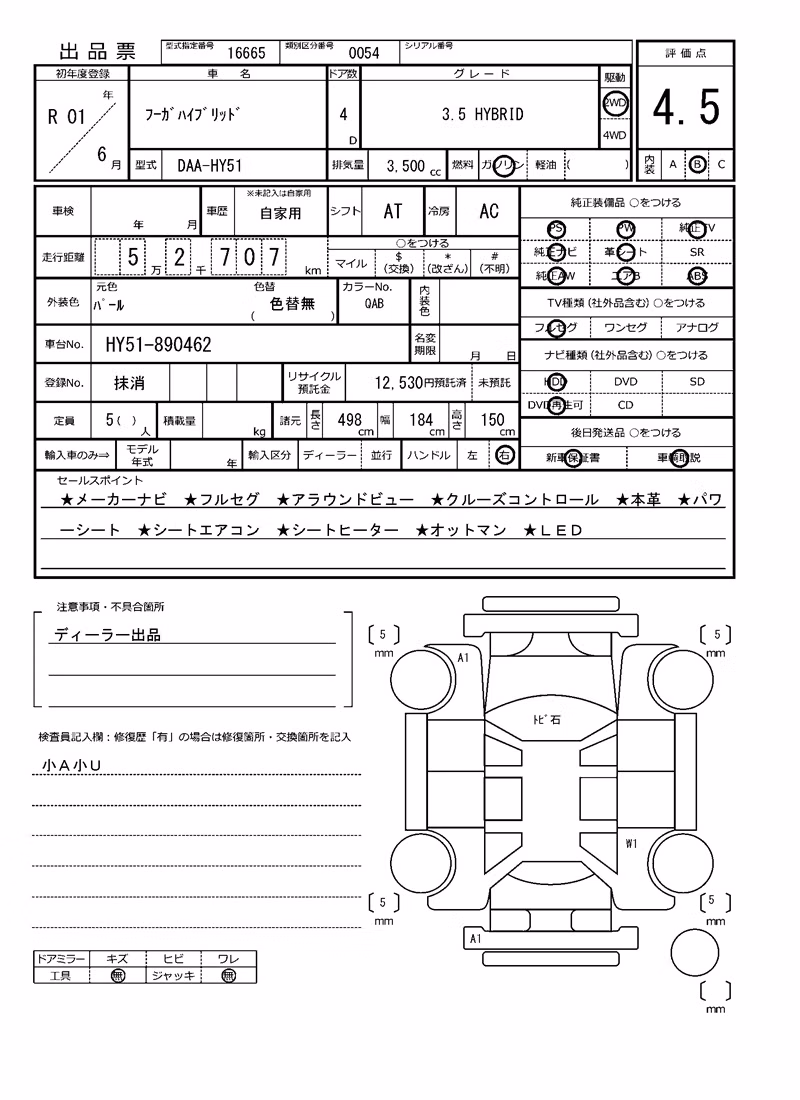 出品票 型式指定番号 16665 類別区分番号 0054 シリアル番号
評価点
4.5
内装 A B C
初年度登録 車名 ドア数 グレード 駆動
R 01 年 6 月 フーガハイブリッド 4 D 3.5 HYBRID 2WD
4WD
型式 DAA-HY51 排気量 3,500 cc 燃料 ガソリン 軽油 ( )
車検 年 月 車歴 ※未記入は自家用 自家用 シフト AT 冷房 AC
走行距離 5 万 2 千 7 0 7 km ○をつける
マイル $ (交換) * (改ざん) # (不明)
外装色 元色 パール 色替 ( 色替無 ) カラーNo. QAB 内装色
車台No. HY51-890462 名変期限 月 日
登録No. 抹消 リサイクル預託金 12,530円預託済 未預託
定員 5 ( ) 人 積載量 kg 諸元 長さ 498 cm 幅 184 cm 高さ 150 cm
輸入車のみ⇒ モデル年式 年 輸入区分 ディーラー 並行 ハンドル 左 右
純正装備品 ○をつける
PS PW 純正TV
純正ナビ 革シート SR
純正AW エアB ABS
TV種類 (社外品含む) ○をつける
フルセグ ワンセグ アナログ
ナビ種類 (社外品含む) ○をつける
HDD DVD SD
DVD再生可 CD
後日発送品 ○をつける
新車保証書 車輌取説
セールスポイント
★メーカーナビ ★フルセグ ★アラウンドビュー ★クルーズコントロール ★本革 ★パワ
ーシート ★シートエアコン ★シートヒーター ★オットマン ★LED
注意事項・不具合箇所
ディーラー出品
検査員記入欄:修復歴「有」の場合は修復箇所・交換箇所を記入
小A小U
ドアミラー キズ ヒビ ワレ
工具 無 ジャッキ 無
[ 5 ] mm
[ 5 ] mm
A1
トビ石
W1
[ 5 ] mm
[ 5 ] mm
A1
[ ] mm